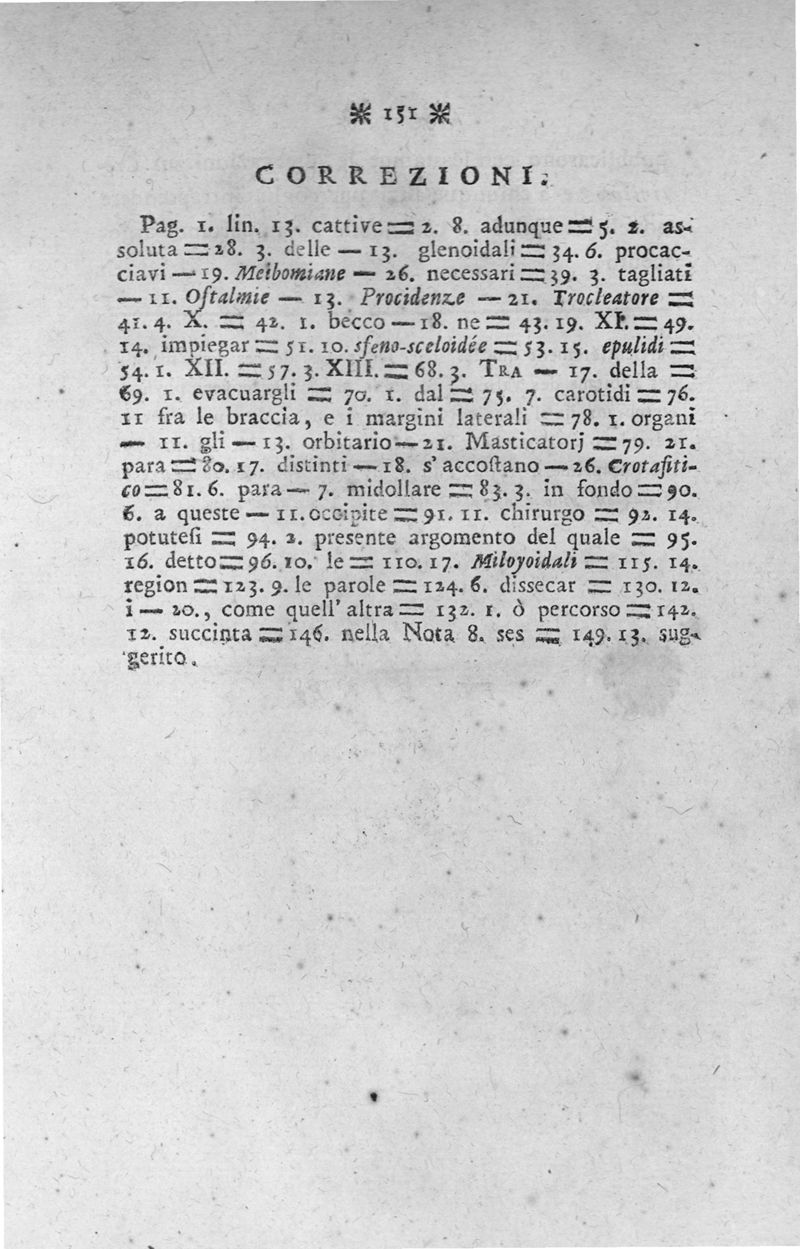 ※ 151 ※
CORREZIONI.
Pag. 1. lin. 13. cattive = 2. 8. adunque = 5. 2. as-
soluta = 28. 3. delle — 13. glenoidali = 34. 6. procac-
ciavi — 19. Meibomiane — 26. necessari = 39. 3. tagliati
— 11. Oftalmie — 13. Procidenze — 21. Trocleatore =
41. 4. X. = 42. 1. becco — 18. ne = 43. 19. XI. = 49.
14. impiegar = 51. 10. sfeno-sceloidée = 53. 15. epulidi =
54. 1. XII. = 57. 3. XIII. = 68. 3. TRA — 17. della =
69. 1. evacuargli = 70. 1. dal = 75. 7. carotidi = 76.
11 fra le braccia, e i margini laterali = 78. 1. organi
— 11. gli — 13. orbitario — 21. Masticatorj = 79. 21.
para = 80. 17. distinti — 18. s' accoſtano — 26. Crotafiti-
co = 81. 6. para — 7. midollare = 83. 3. in fondo = 90.
6. a queste — 11. occipite = 91. 11. chirurgo = 92. 14.
potuteſi = 94. 2. presente argomento del quale = 95.
16. detto = 96. 10. le = 110. 17. Miloyoidali = 115. 14.
region = 123. 9. le parole = 124. 6. dissecar = 130. 12.
i — 20., come quell' altra = 132. 1. ò percorso = 142.
12. succinta = 146. nella Nota 8. ses = 149. 13. sug-
gerito.